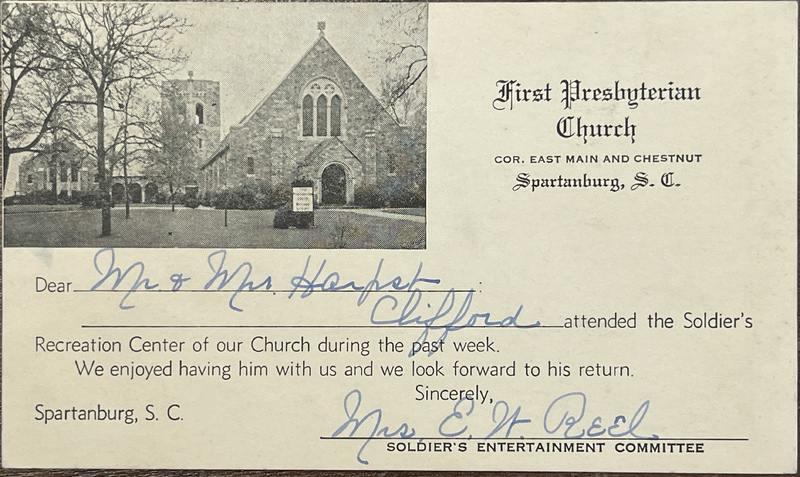 First Presbyterian
Church
COR. EAST MAIN AND CHESTNUT
Spartanburg, S. C.
Dear Mr & Mrs. Harpst :
Clifford attended the Soldier's
Recreation Center of our Church during the past week.
We enjoyed having him with us and we look forward to his return.
Sincerely,
Spartanburg, S. C.
Mrs. E. W. Reel
SOLDIER'S ENTERTAINMENT COMMITTEE